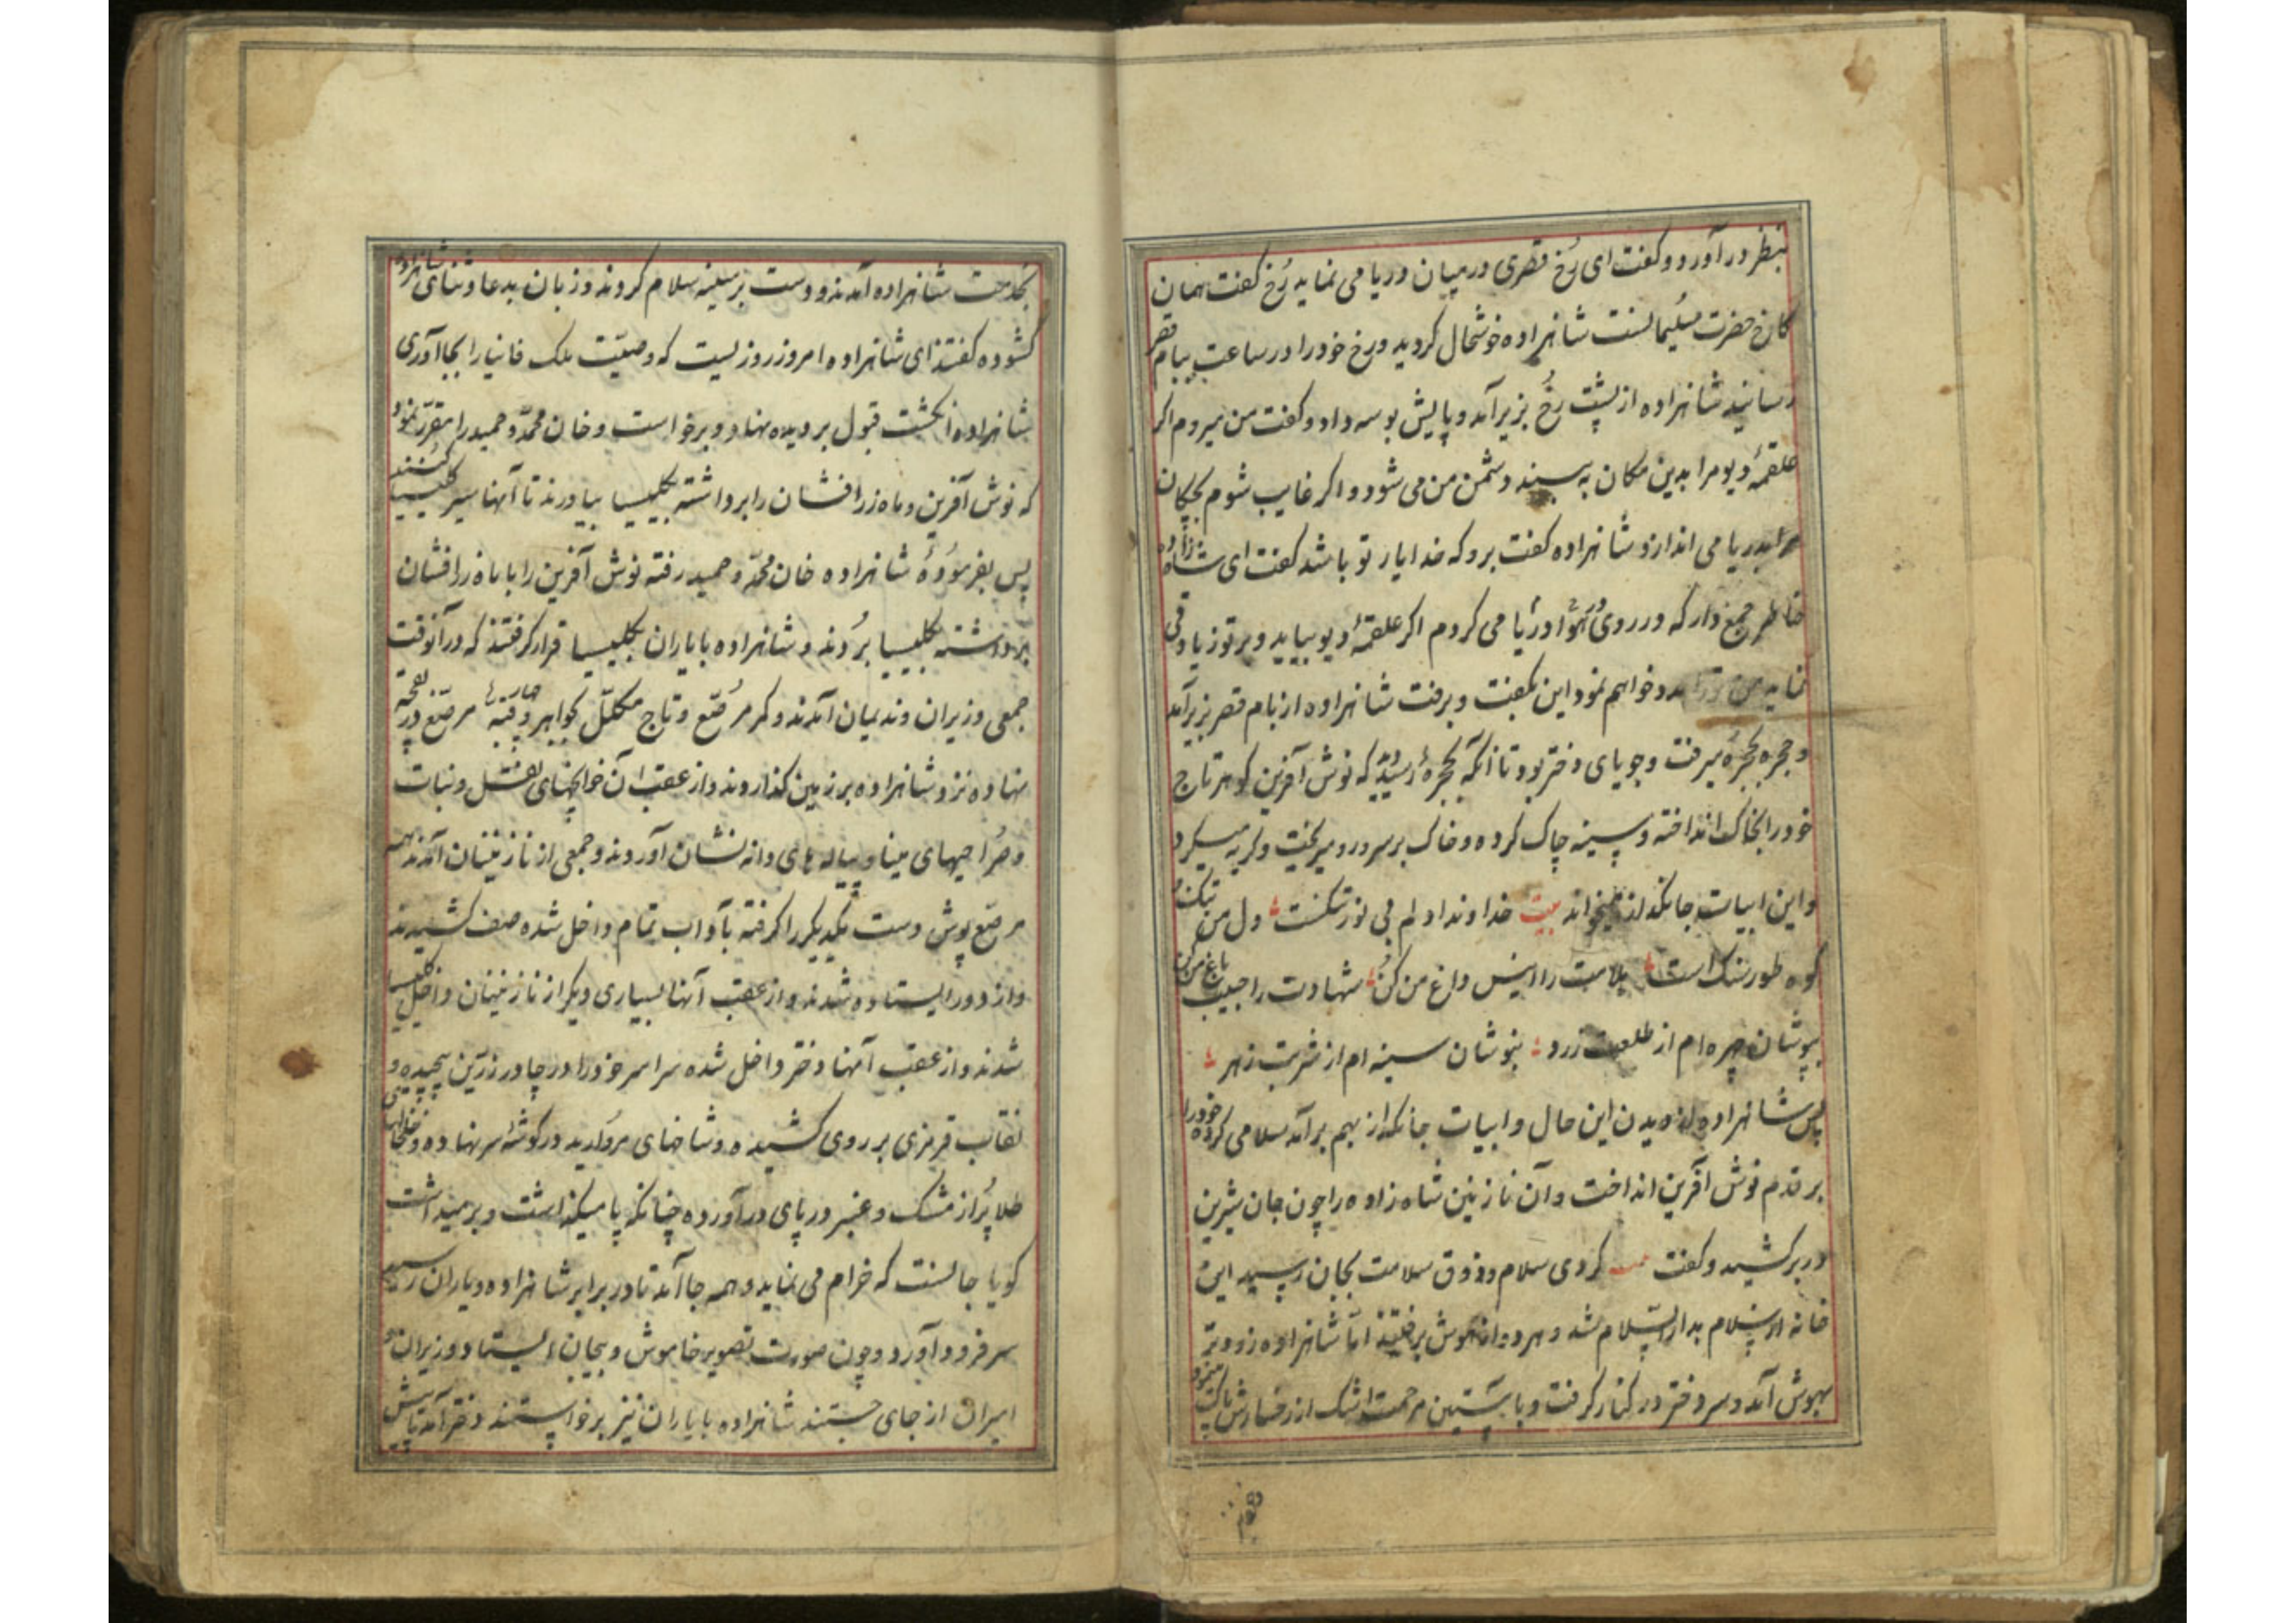 بنظر در آورد و گفت ای رُخ قصری در میان دریا می نماید رُخ گفت همان
کاخ حضرت سُلیمانست شاهزاده خوشحال گردید و رخ خود را در ساعت ببام قصر
رسانید شاهزاده از پشت رخُ بزیر آمد و پایش بوسه داد و گفت من میروم اگر
علقمهٔ دیو مرا بدین مکان به بیند دشمن من می شود و اگر غایب شوم
مرا بدریا می اندازد شاهزاده گفت برو که خدا یار تو باشد گفت ای شاهزاده
خاطر جمع دار که در روی هوا و دریا می گردم اگر علقمهٔ دیو بیاید و بر تو زیادتی
نماید من ترا مدد خواهم نمود این بگفت و برفت شاهزاده از بام قصر بزیر آمد
و حجره بحجره میرفت و جویای دختر بود تا آنکه بحجرهٔ رسید که نوش آفرین گوهر تاج
خود را بخاک انداخته و سینه چاک کرده و خاک بر سر و رو میریخت و گریه میکرد
و این ابیات جانگداز میخواند بیت خداوندا دلم بی نور تنگست دل من
کوه طور سنگ است بلامت را انیس داغ من کنُ شهادت را حبیب باغ من کن
بپوشان چهره ام از طلعت زرد بنوشان سینه ام از شربت زهر
پس شاهزاده از دیدن این حال و ابیات جانگداز بهم برآمد سلامی کرده خود را
بر قدم نوش آفرین انداخت و آن نازنین شاه زاده را چون جان شیرین
در بر کشید و گفت کردی سلام و ذوق سلامت بجان رسید این
خانه از سلام بدار السّلام شد و هر دو از هوش برفتند امّا شاهزاده زودتر
بهوش آمد و سر دختر در کنار گرفت و با آستین مرحمت اشک از رخسارش پاک مینمود
بخدمت شاهزاده آمدند و دست بر سینه سلام کردند و زبان بدعا و ثنای شاهزاده
گشوده گفتند ای شاهزاده امروز روزیست که وصیّت ملک فانیا را بجا آوری
شاهزاده انگشت قبول بر دیده نهاد و برخواست و خان محمّد و حمید را مقرّر نمود
که نوش آفرین و ماه زرافشان را برداشته بکلیسیا بیاورند تا آنها سیر کلیسیا کنند
پس بفرمُودهٔ شاهزاده خان محمّد و حمید رفته نوش آفرین را با ماه زرافشان
برداشته بکلیسیا بُردند و شاهزاده با یاران بکلیسیا قرار گرفتند که در آنوقت
جمعی وزیران و ندیمان آمدند و کمر مُرصّع و تاج مکلّل بجواهر و قبهٔ مرصّع در بقچه
نهاده نزد شاهزاده بر زمین گذاردند و از عقب آن خوانچهای نقل و نبات
و صُراحیهای مینا و پیاله های دانه نشان آوردند و جمعی از نازنینان آمدند همه
مرصّع پوش دست یکدیگر را گرفته بآداب تمام داخل شده صف کشیدند
و از دور ایستاده شدند و از عقب آنها بسیاری دیگر از نازنینان داخل کلیسیا
شدند و از عقب آنها دختر داخل شده سراسر خود را در چادر زرّین پیچیده و
نقاب قرمزی بر روی کشیده و شاخهای مروارید در گوشهٔ سر نهاده و خلخالهای
طلا پُر از مشک و عنبر در پای درآورده چنانکه پا میگذاشت و برمیداشت
گویا جانست که خرام می نماید و همه جا آمد تا در برابر شاهزاده و یاران رسید
سر فرود آورد و چون صورت تصویر خاموش و بیجان ایستاد و وزیران و
امیران از جای جستند شاهزاده با یاران نیز برخواستند دختر آمد تا پیش